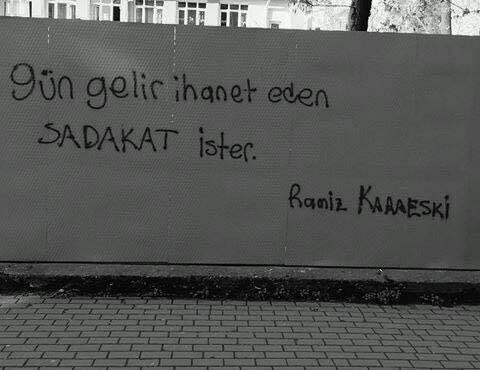 gün gelir ihanet eden
SADAKAT ister.
Ramiz KAAAESKİ